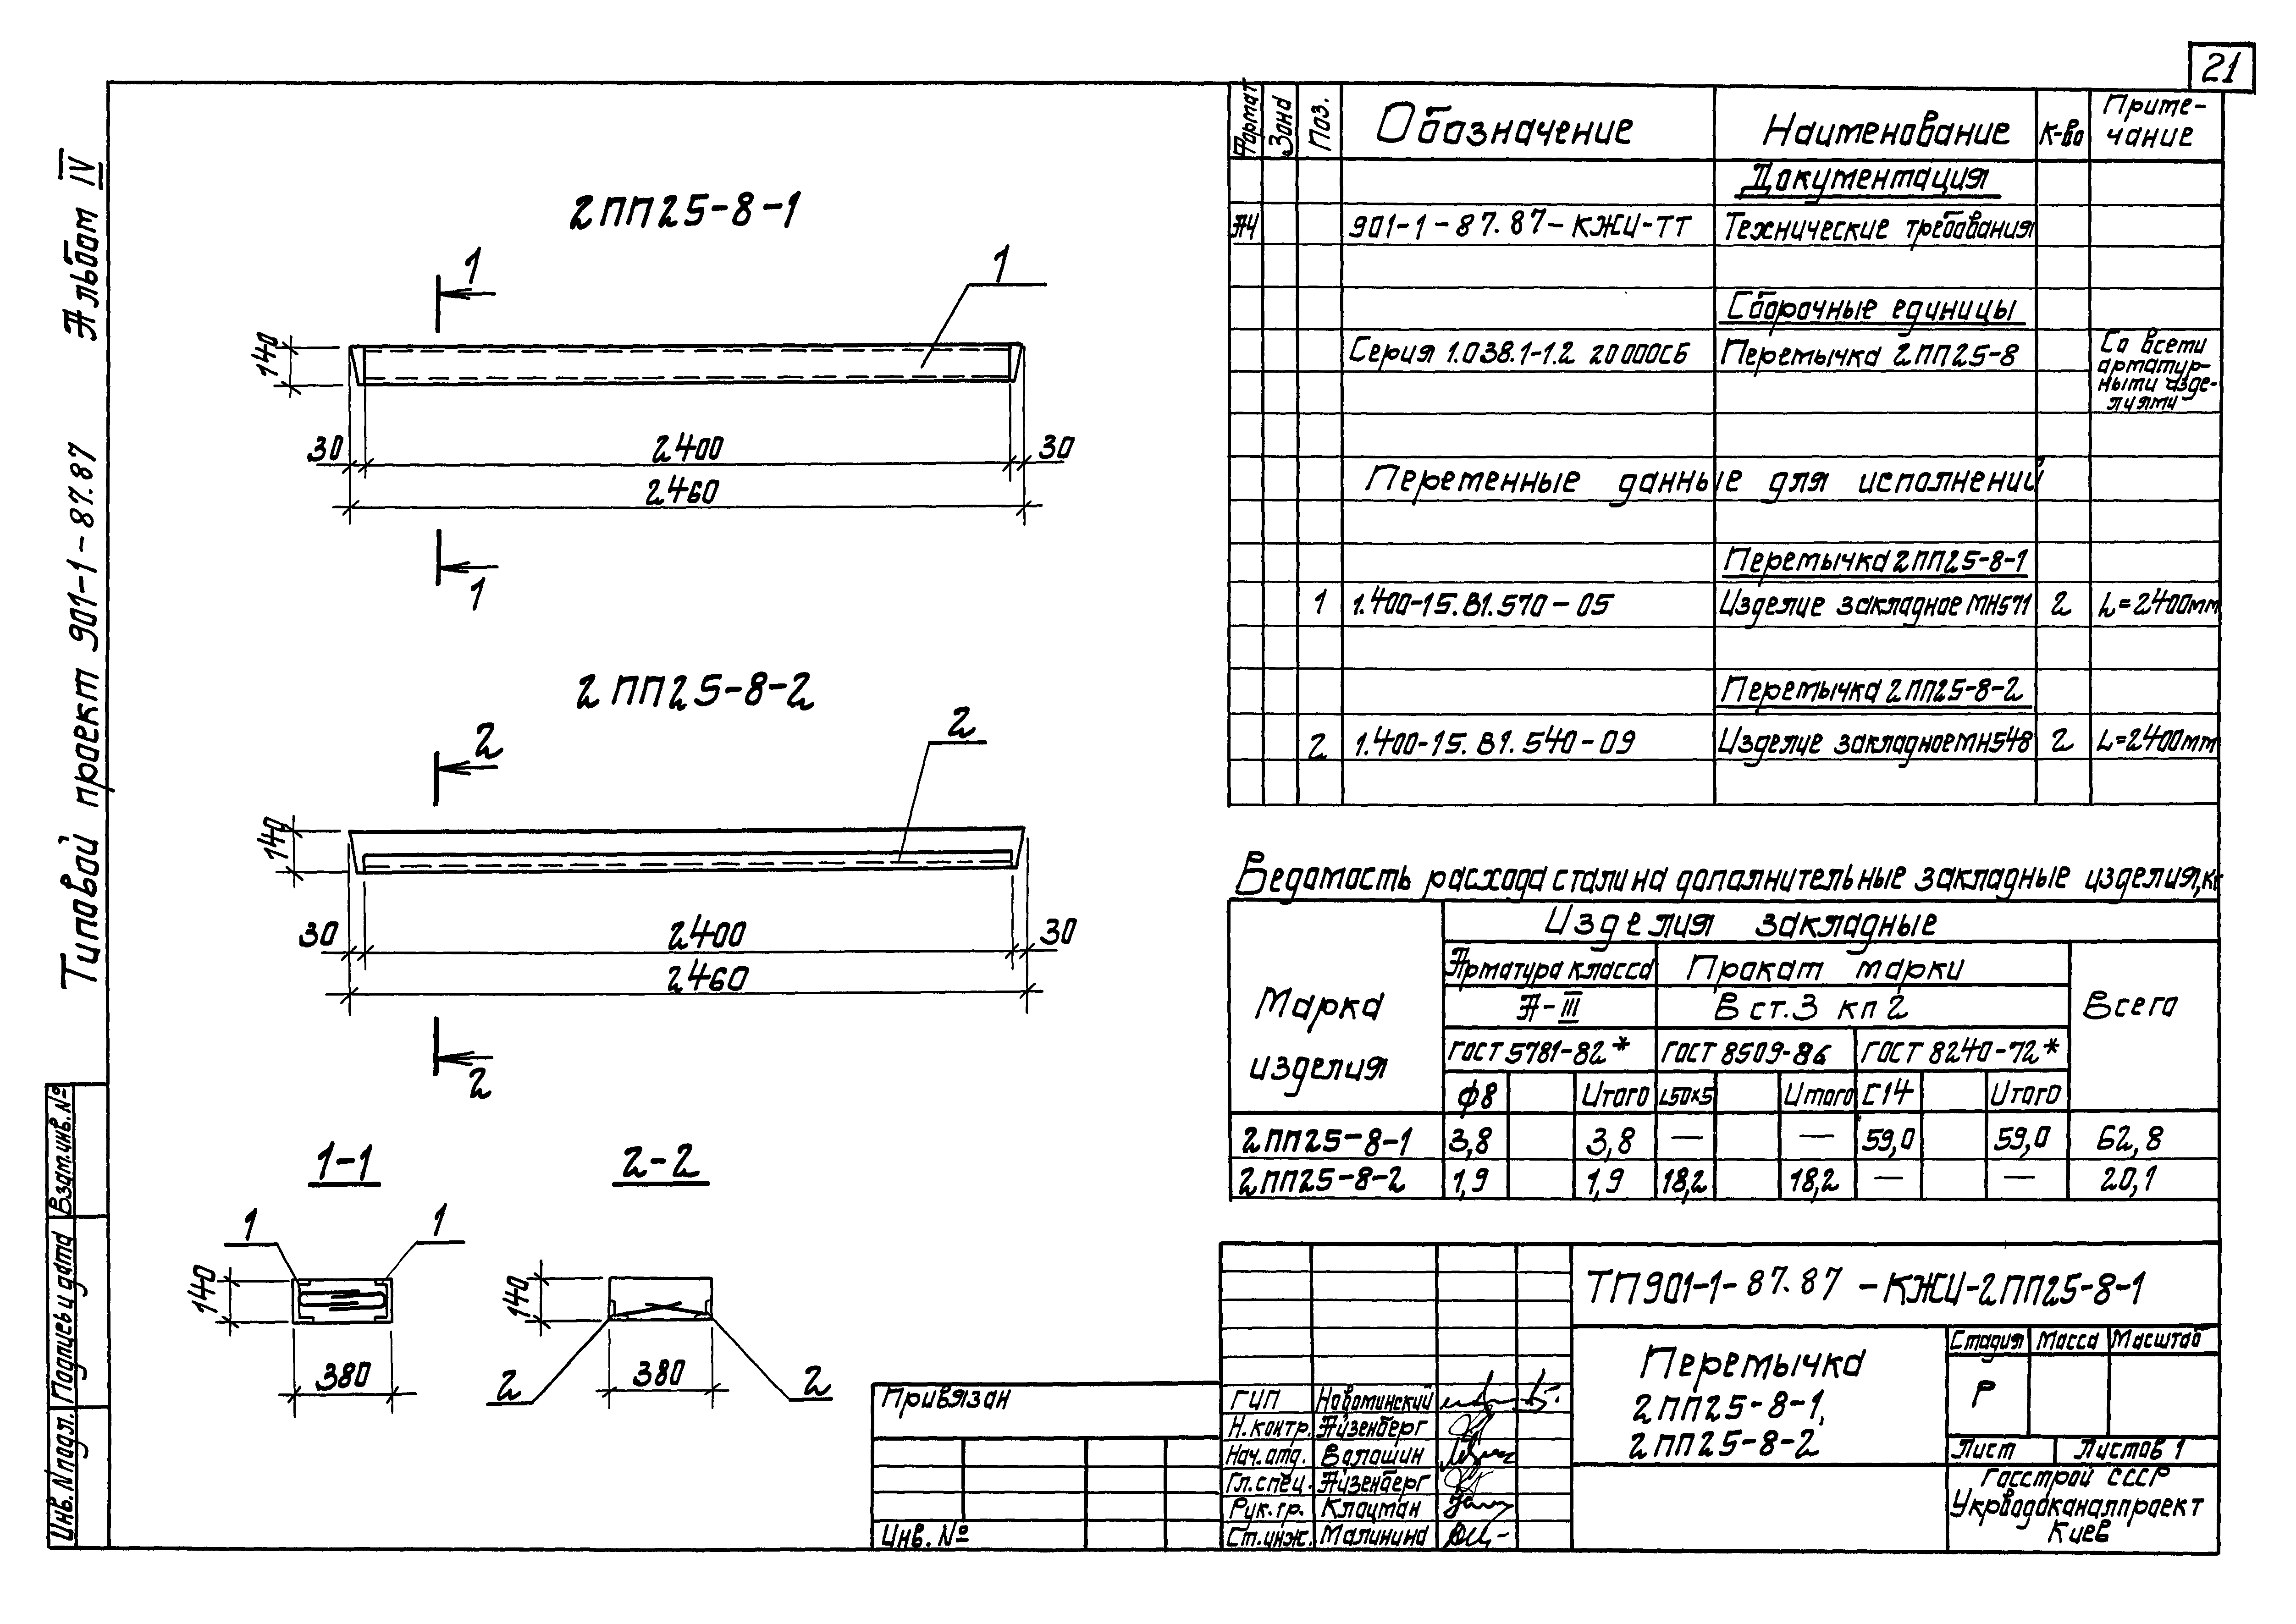 21
Альбом IV
Типовой проект 901-1-87.87
Взам.инв.№
Подпись и дата
Инв.№подл.
2ПП25-8-1
1
1
140
30
2400
30
2460
1
2ПП25-8-2
2
2
140
30
2400
30
2460
2
1-1
2-2
1
1
140
380
140
380
2
2
Формат
Зона
Поз.
Обозначение
Наименование
К-во
Приме-
чание
Документация
А4
901-1-87.87-КЖИ-ТТ
Технические требования
Сборочные единицы
Серия 1.038.1-1.2 20000СБ
Перемычка 2ПП25-8
Со всеми
арматур-
ными изде-
лиями
Переменные данные для исполнений
Перемычка 2ПП25-8-1
1
1.400-15.В1.570-05
Изделие закладное МН571
2
L=2400мм
Перемычка 2ПП25-8-2
2
1.400-15.В1.540-09
Изделие закладное МН548
2
L=2400мм
Ведомость расхода стали на дополнительные закладные изделия, кг
Марка
изделия
Изделия закладные
Арматура класса
Прокат марки
Всего
А-III
В ст.3 кп2
ГОСТ 5781-82*
ГОСТ 8509-86
ГОСТ 8240-72*
ф8
Итого
L50х5
Итого
С14
Итого
2ПП25-8-1
3,8
3,8
—
—
59,0
59,0
62,8
2ПП25-8-2
1,9
1,9
18,2
18,2
—
—
20,1
ТП901-1-87.87-КЖИ-2ПП25-8-1
Перемычка
2ПП25-8-1,
2ПП25-8-2
Стадия
Масса
Масштаб
Р
Лист
Листов 1
Госстрой СССР
Укрводоканалпроект
Киев
Привязан
Инв. №
ГИП
Новоминский
Н.контр.
Айзенберг
Нач.отд.
Волошин
Гл.спец.
Айзенберг
Рук.гр.
Клоцман
Ст.инж.
Малинина